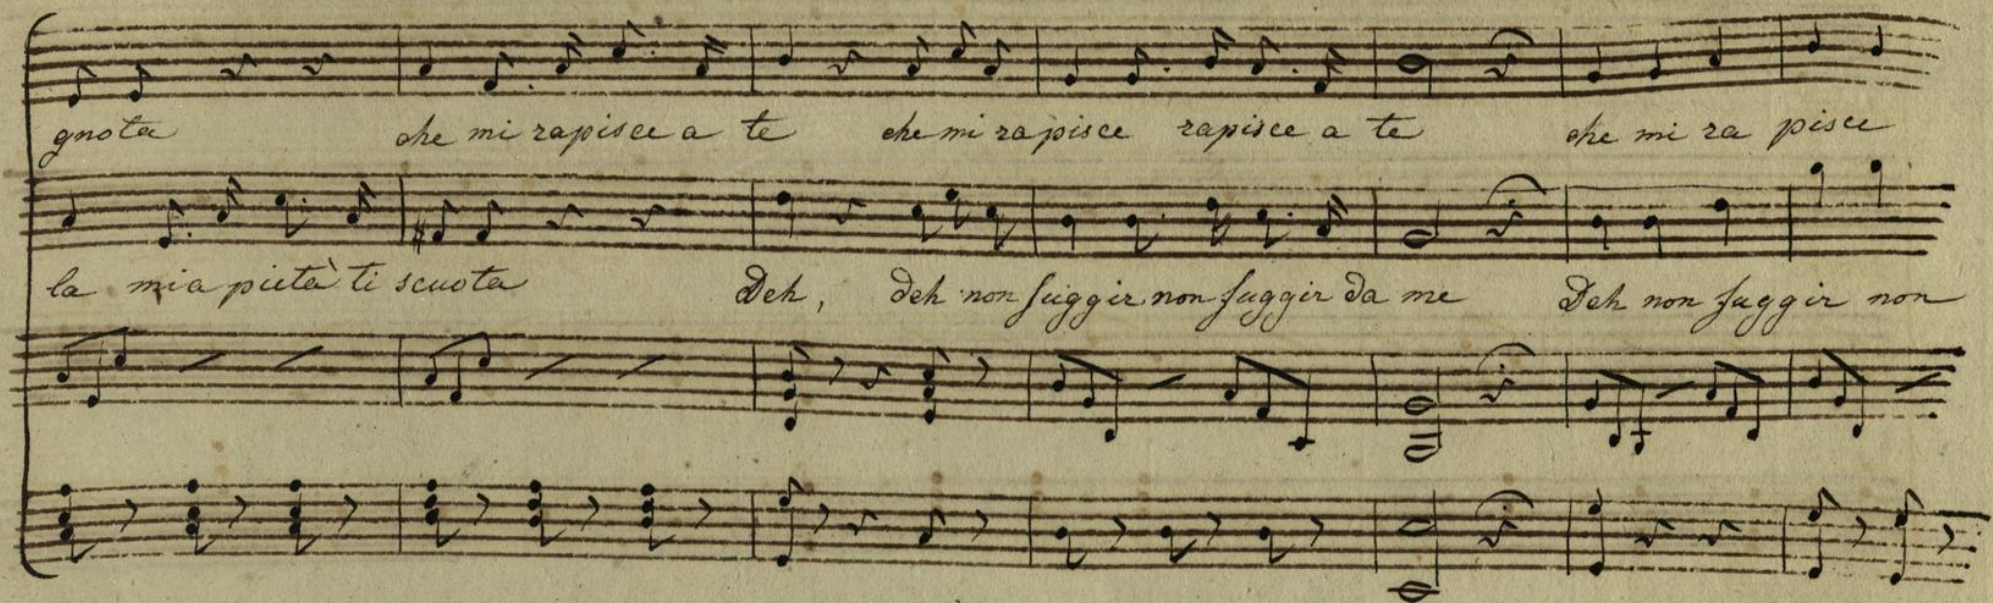 gnota che mi rapisce a te che mi rapisce rapisce a te che mi ra pisce
la mia pietà ti scuota Deh, deh non fuggir non fuggir da me Deh non fuggir non